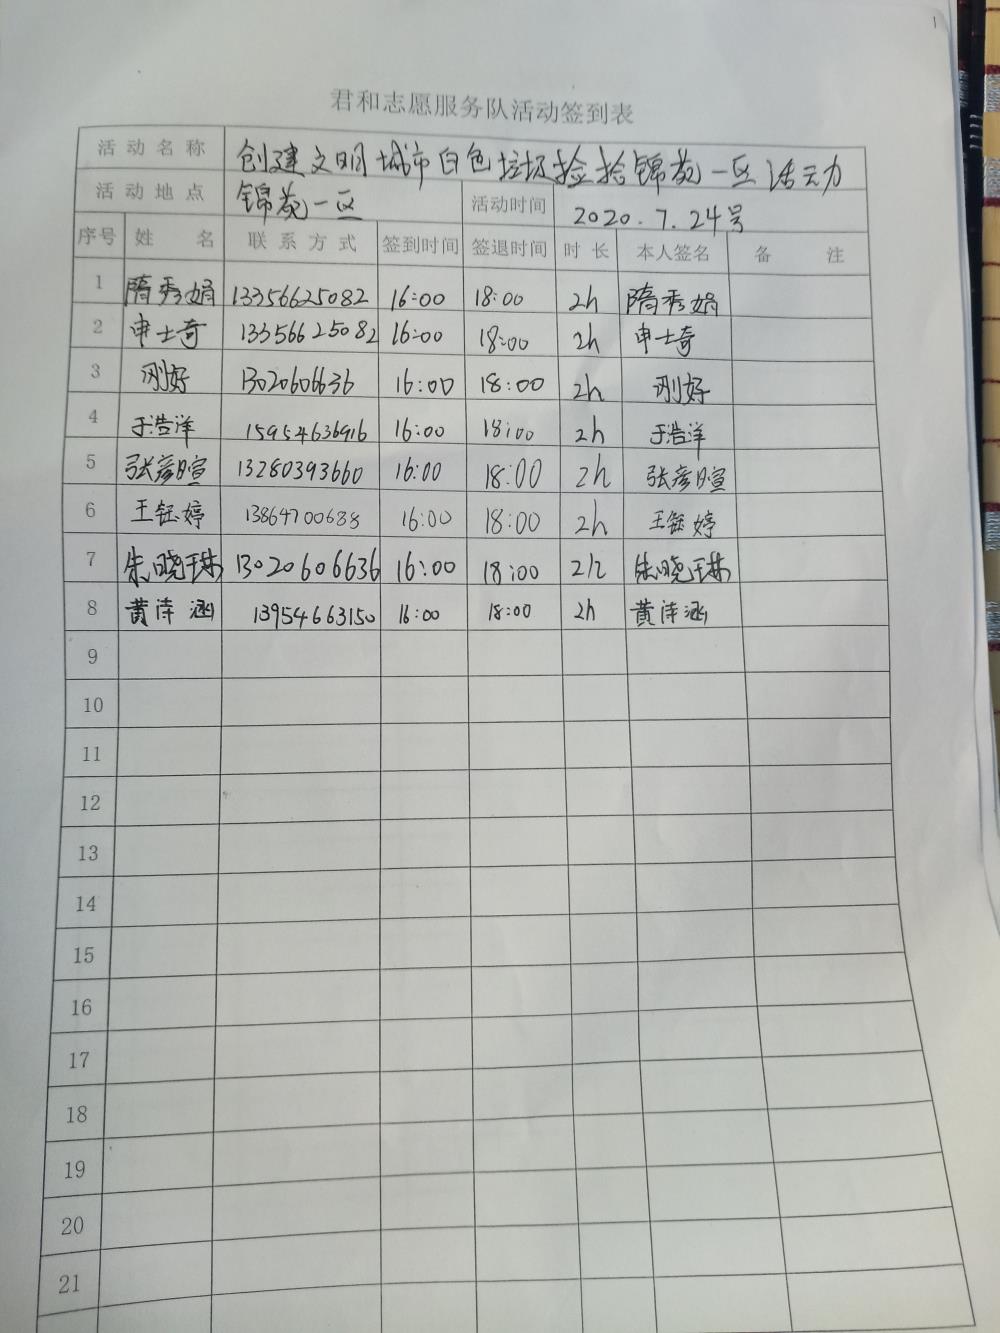 1
君和志愿服务队活动签到表
活动名称 创建文明城市白色垃圾捡拾锦苑一区活动
活动地点 锦苑一区 活动时间 2020.7.24号
序号 姓名 联系方式 签到时间 签退时间 时长 本人签名 备注
1 隋秀娟 13356625082 16:00 18:00 2h 隋秀娟
2 申士奇 13356625082 16:00 18:00 2h 申士奇
3 刚好 13020606636 16:00 18:00 2h 刚好
4 于浩洋 15954636916 16:00 18:00 2h 于浩洋
5 张彦暄 13280393660 16:00 18:00 2h 张彦暄
6 王钰婷 13864700688 16:00 18:00 2h 王钰婷
7 朱晓琳 13020606636 16:00 18:00 2h 朱晓琳
8 黄诗涵 13954663150 16:00 18:00 2h 黄诗涵
9
10
11
12
13
14
15
16
17
18
19
20
21